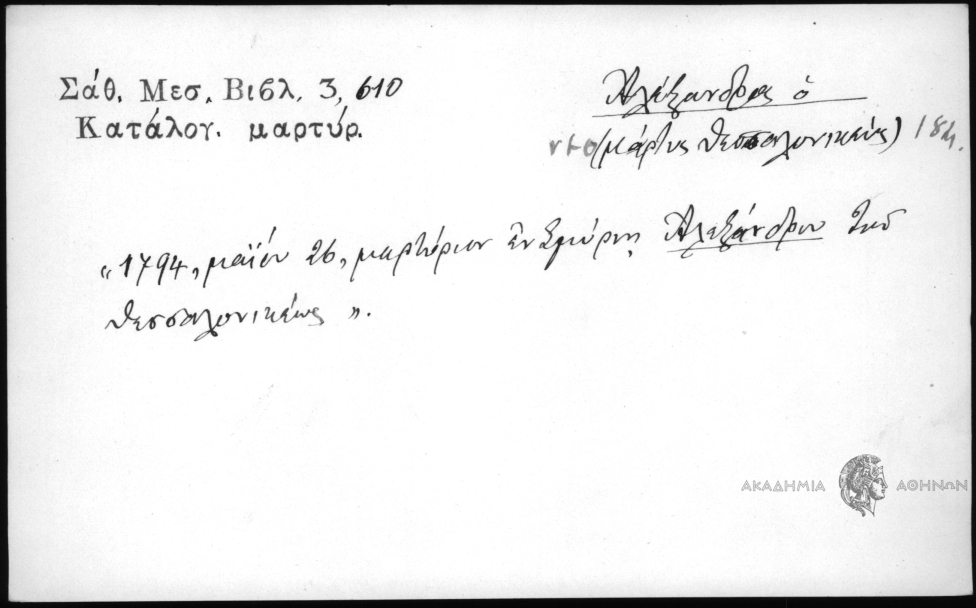 Σάθ. Μεσ. Βιβλ. 3, 610
Κατάλογ. μαρτύρ.
Ἀλέξανδρος ὁ
(μάρτυς Θεσσαλονικεύς) 18
"1794, μαΐου 26, μαρτύριον ἐν Σμύρνῃ Ἀλεξάνδρου τοῦ
Θεσσαλονικέως".
ΑΚΑΔΗΜΙΑ ΑΘΗΝΩΝ